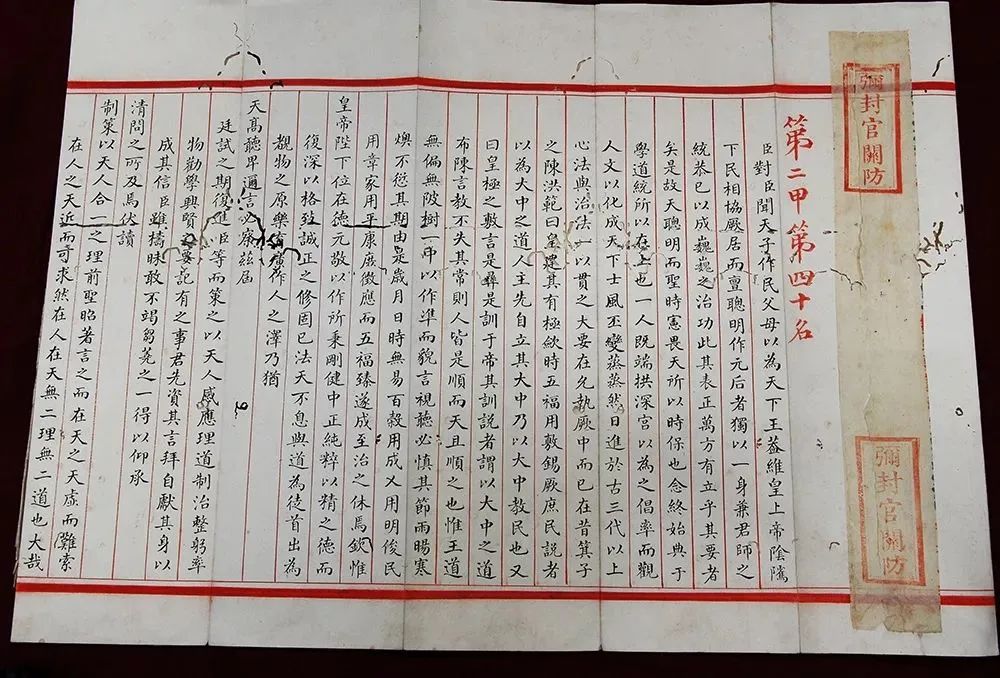 彌封官關防
彌封官關防
第二甲第四十名
臣對臣聞天子作民父母以為天下王蓋維皇上帝陰隲
下民相協厥居而亶聰明作元后者獨以一身兼君師之
統恭己以成巍巍之治功此其表正萬方有立乎其要者
矣是故天聰明而聖時憲畏天所以時保也念終始典于
學道統所以在上也一人既端拱深宮以為之倡率而觀
人文以化成天下士風丕變蒸蒸然日進於古三代以上
心法與治法一以貫之大要在允執厥中而已在昔箕子
之陳洪範曰皇建其有極歛時五福用敷錫厥庶民說者
以為大中之道人主先自立其大中乃以大中教民也又
曰皇極之敷言是彝是訓于帝其訓說者謂以大中之道
布陳言教不失其常則人皆是順而天且順之也惟王道
無偏無陂樹一中以作準而貌言視聽必慎其節雨暘寒
燠不愆其期由是歲月日時無易百穀用成乂用明俊民
用章家用平康庶徵應而五福臻遂成至治之休焉欽惟
皇帝陛下位在德元敬以作所秉剛健中正純粹以精之德而
復深以格致誠正之修固已法天不息與道為徒首出為
覩物之原樂育作人之澤乃猶
天高聽卑邇言必察茲屆
廷試之期復進臣等而策之以天人感應理道制治整躬率
物勸學興賢之要記有之事君先資其言拜自獻其身以
成其信臣雖檮昧敢不竭芻蕘之一得以仰承
清問之所及焉伏讀
制策以天人合一之理前聖昭著言之而在天之天虛而難索
在人之天近而可求然在人在天無二理無二道也大哉